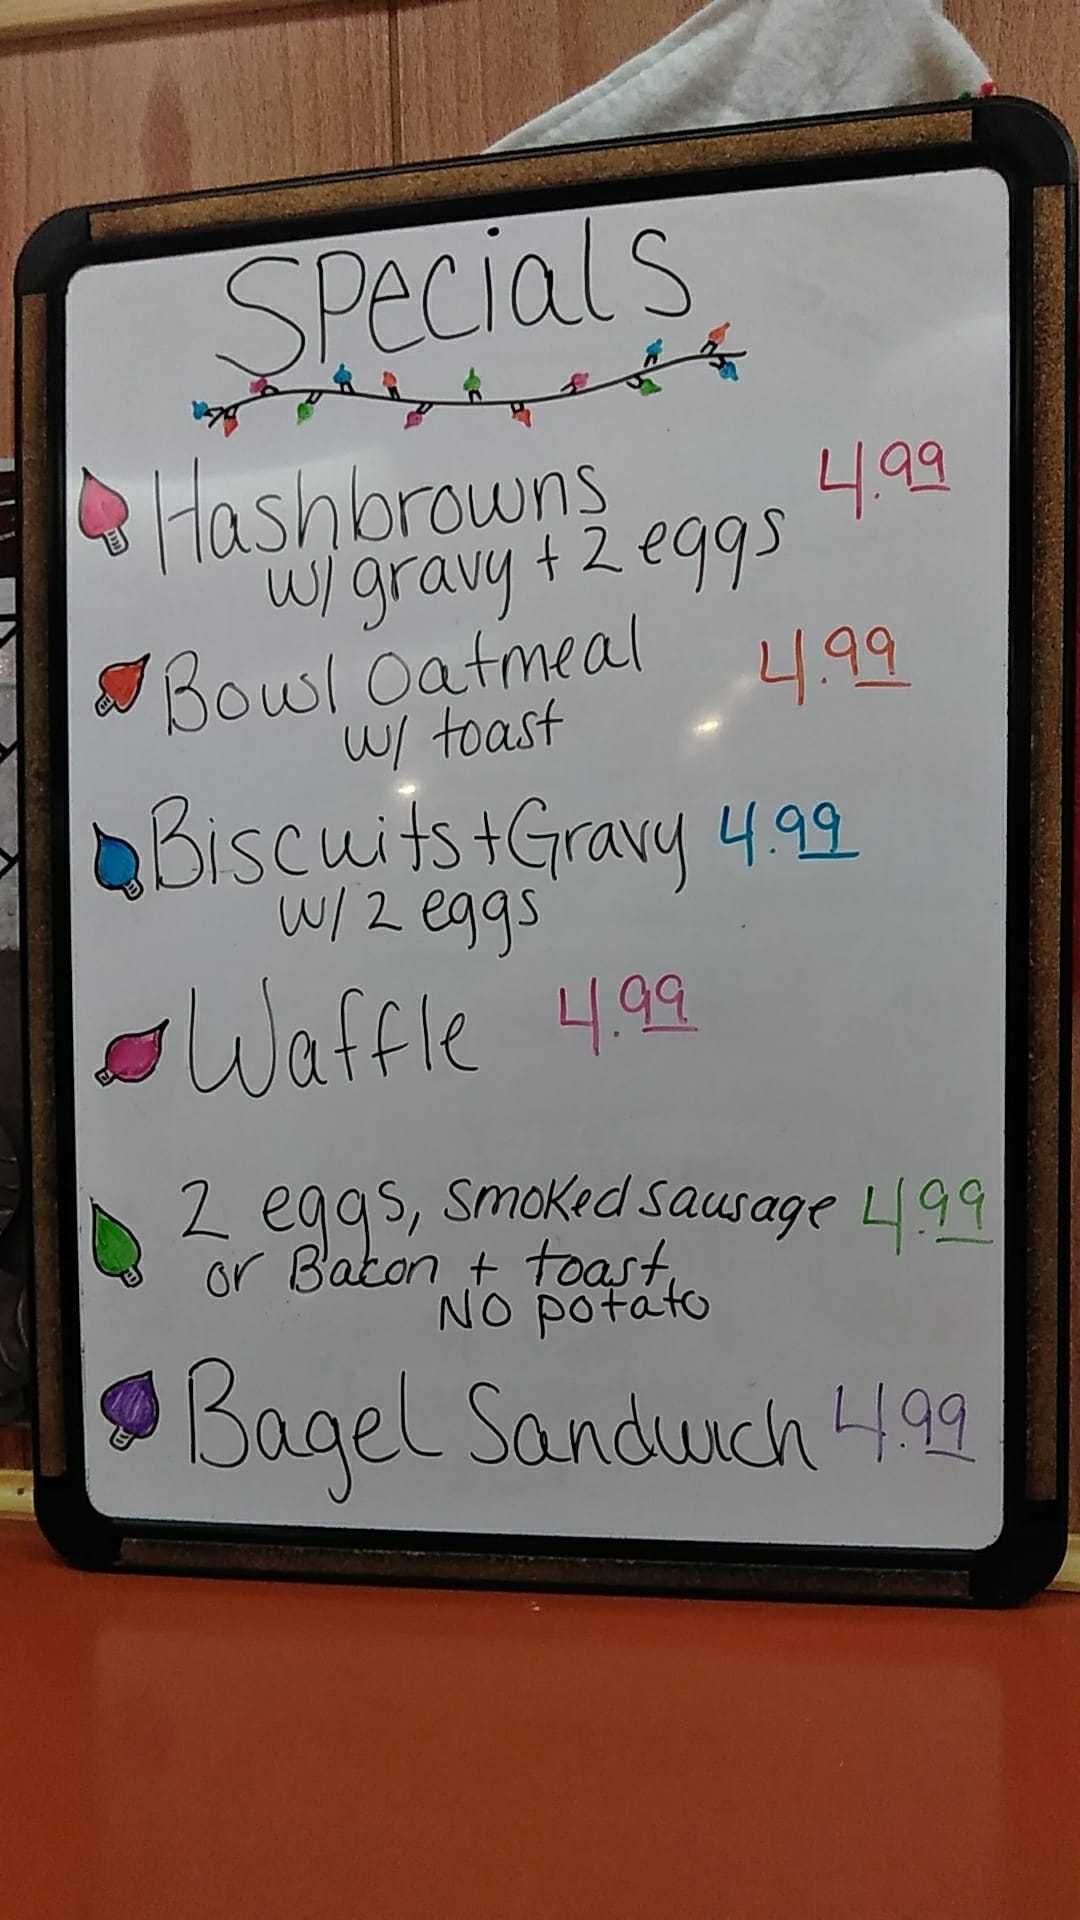 Specials
Hashbrowns 4.99
w/ gravy + 2 eggs
Bowl Oatmeal 4.99
w/ toast
Biscuits + Gravy 4.99
w/ 2 eggs
Waffle 4.99
2 eggs, smoked sausage 4.99
or Bacon + toast,
NO potato
Bagel Sandwich 4.99